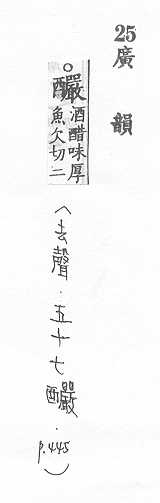 25廣韻
○釅酒醋味厚
魚欠切二
(去聲．五十七釅．p.445)